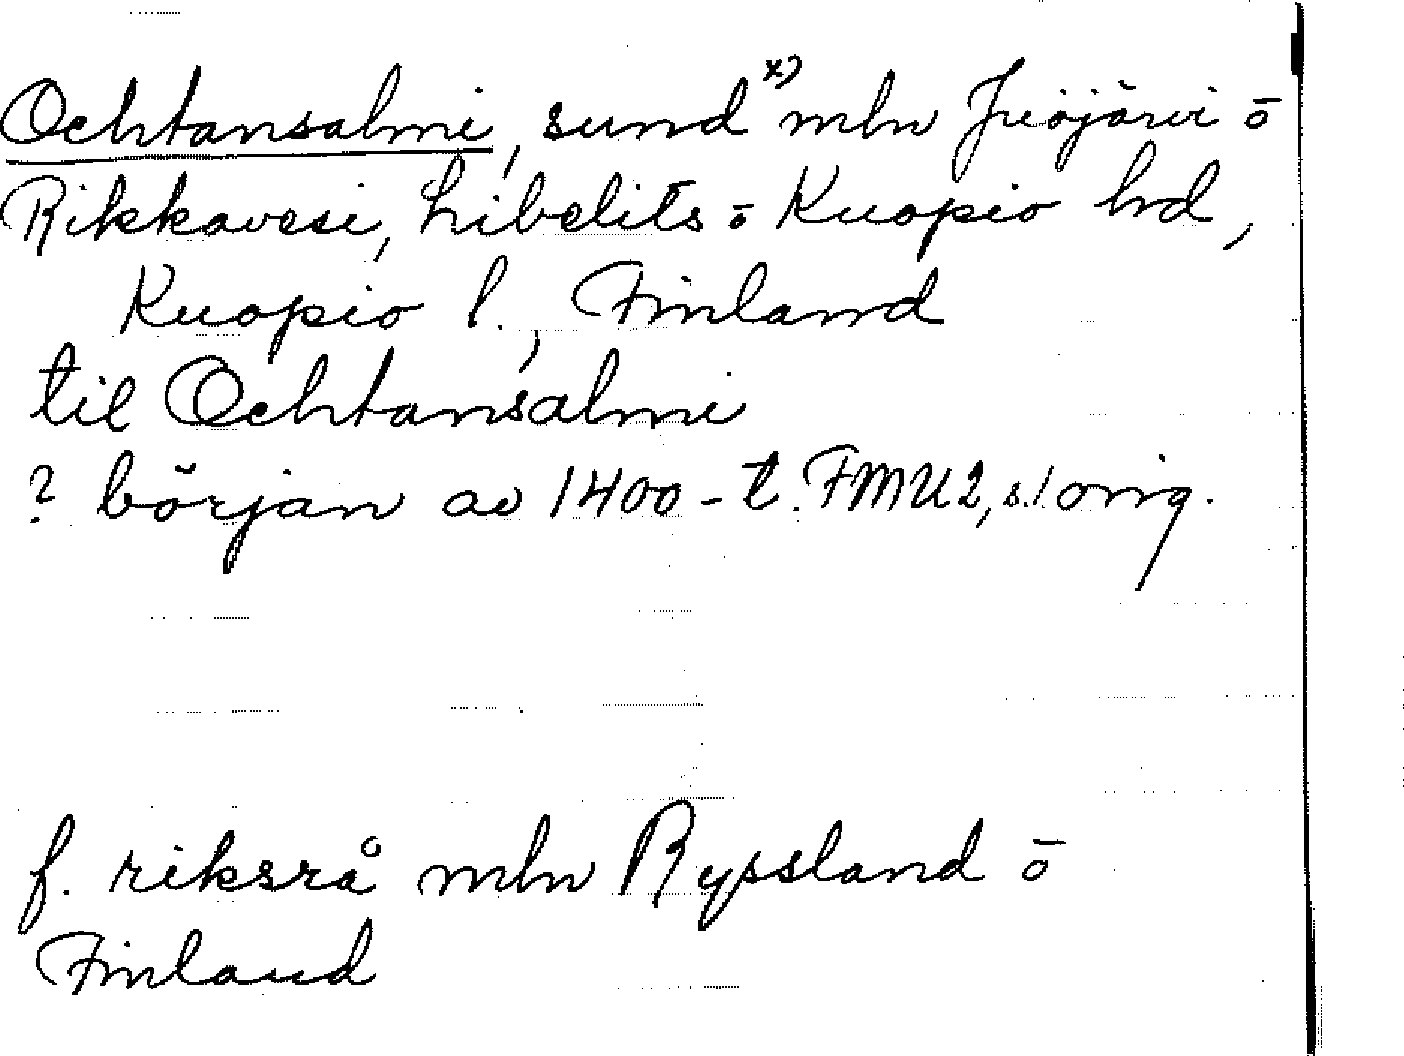 Ochtansalmi, sund x) mln Juojärvi ō
Rikkavesi, Libelits ō Kuopio hd,
Kuopio l., Finland
til Ochtansalmi
? början av 1400-t. FMU2, s.1 orig.
f. riksrå mln Ryssland ō
Finland